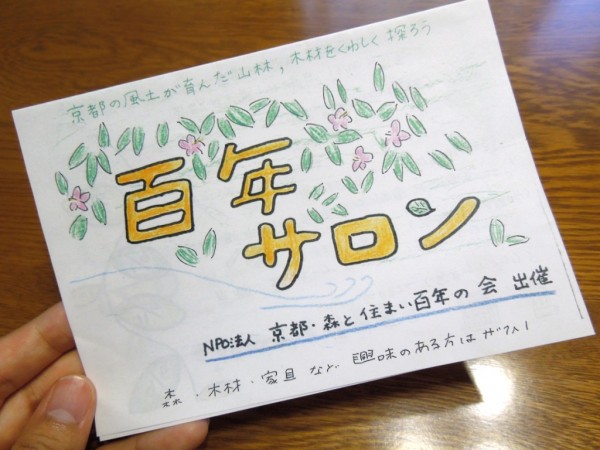 京都の風土が育んだ山林，木材をくわしく探ろう
百年
サロン
NPO法人 京都・森と住まい百年の会 出催
森・木材・家具 など 興味のある方はぜひ!